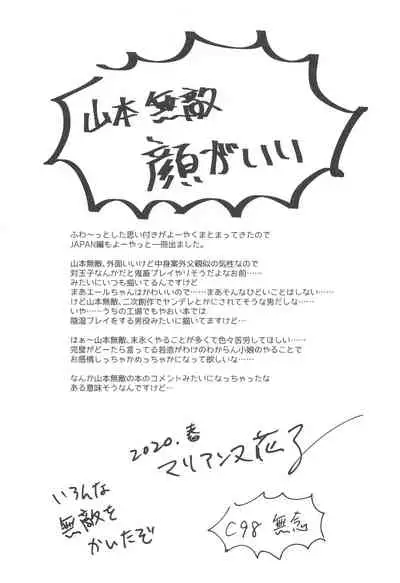 山本 無敵
顔がいい
ふわ〜っとした思い付きがよーやくまとまってきたので
JAPAN編もよーやっと一冊出ました。
山本無敵、外面いいけど中身案外父親似の気性なので
対玉子なんかだと鬼畜プレイやりそうだよなお前……
みたいにいつも描いてるんですけど
まあエールちゃんはかわいいので……まあそんなひどいことはしない……
けど山本無敵、二次創作でヤンデレとかにされてそうな男だしな……
いや……うちの工場でもやおい本では
陰湿プレイをする男役みたいに描いてますけど…
はぁ〜山本無敵、末永くやることが多くて色々苦労してほしい……
完璧がどーたら言ってる若造がわけのわからん小娘のやることで
お感情しっちゃかめっちゃかになって欲しいな……
なんか山本無敵の本のコメントみたいになっちゃったな
ある意味そうなんですけど…
2020.春
マリアンヌ花子
いろんな
無敵を
かいたぞ
C98 無念